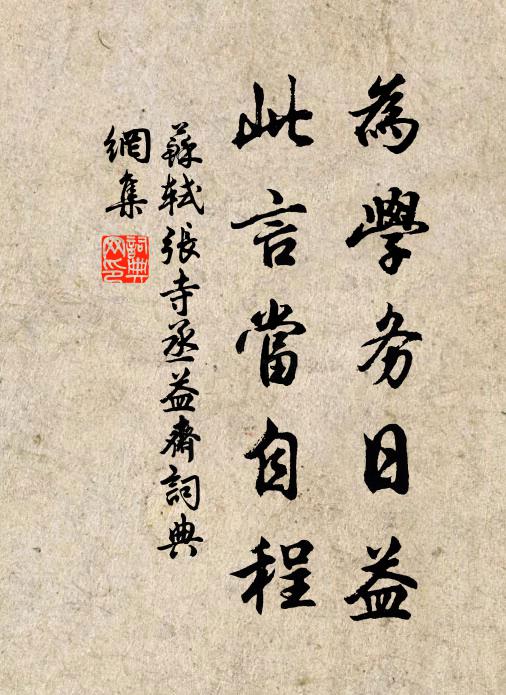 為學务日益
此言當自程
蘇軾張寺丞益齋詞典
網集
詞典
网印